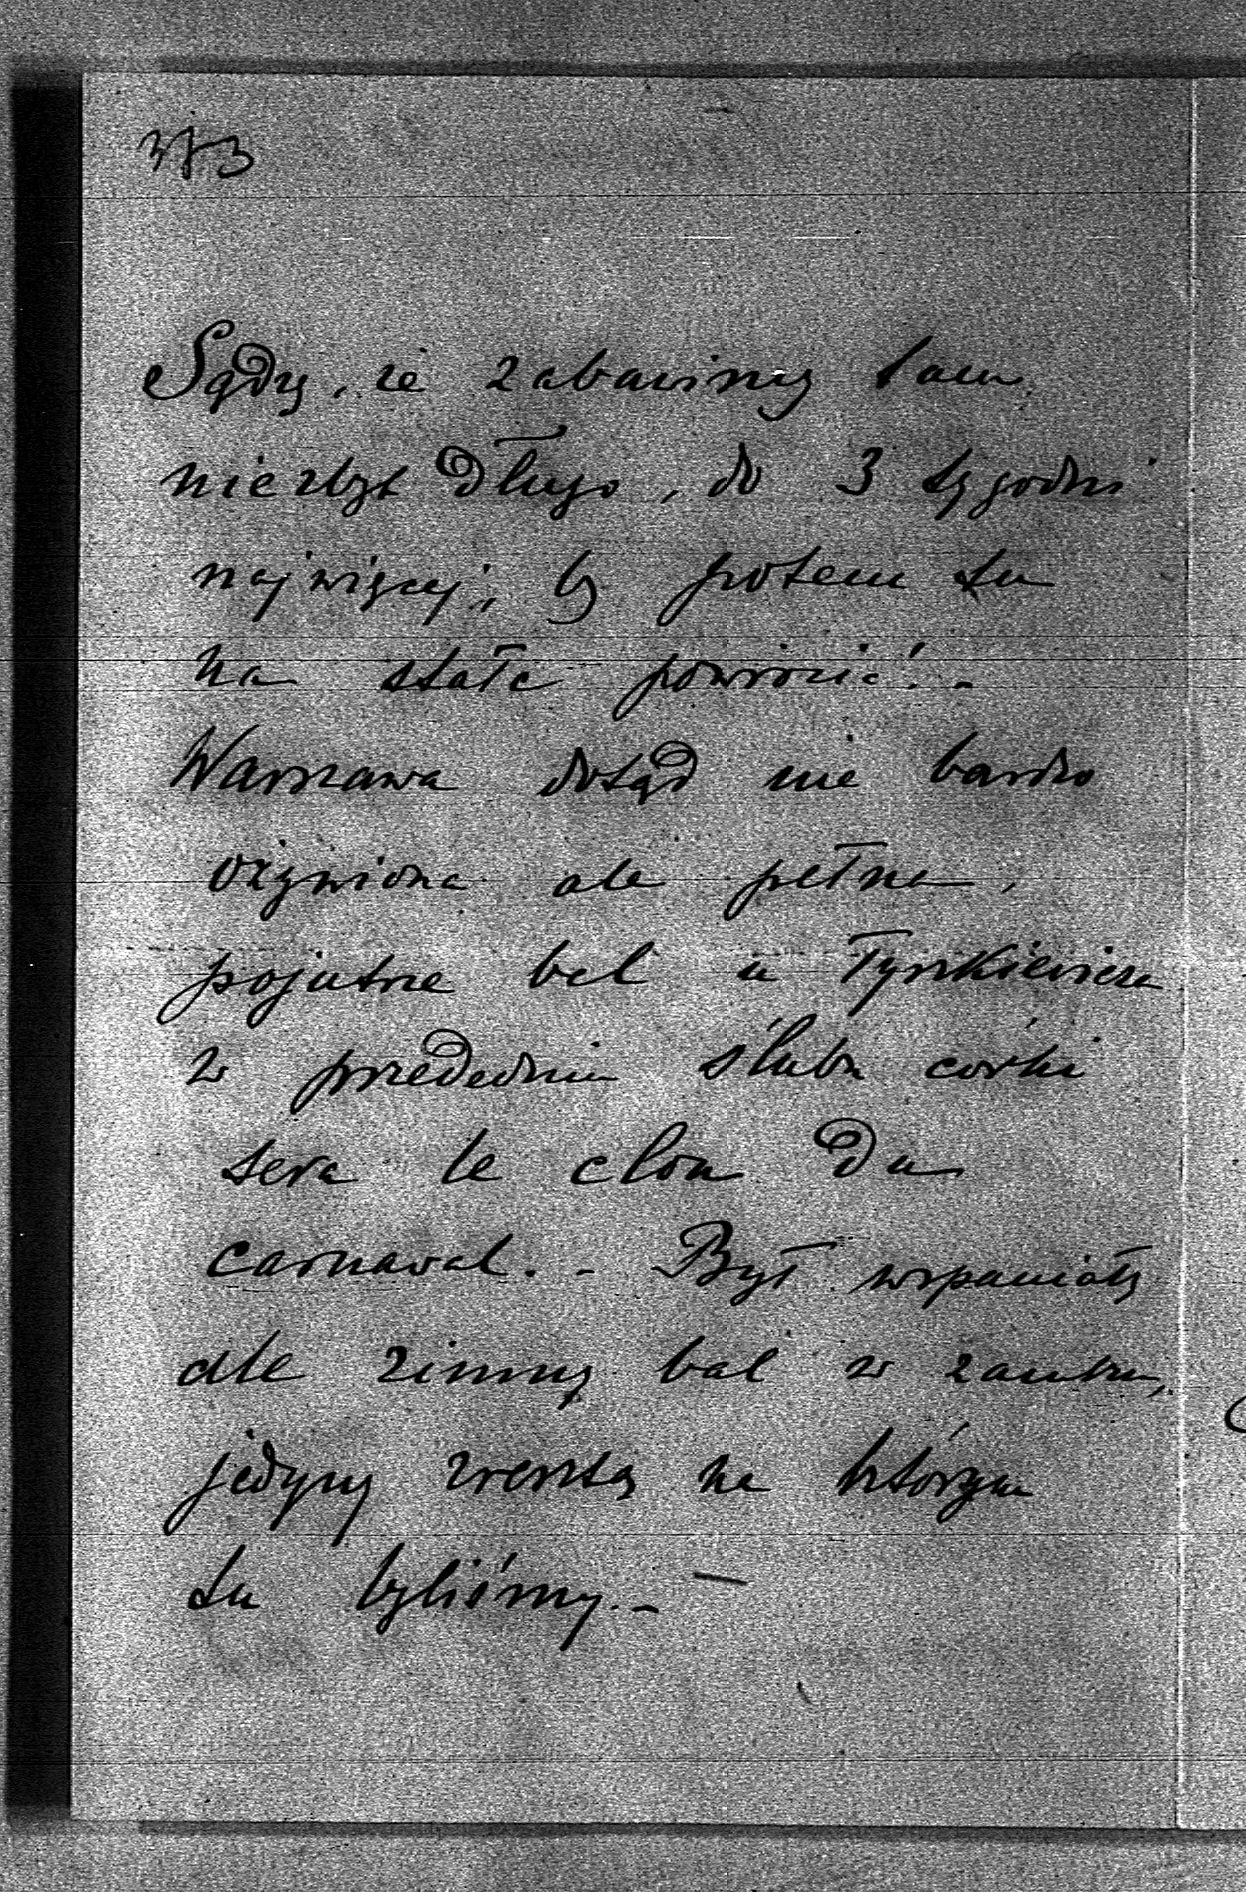 373
Sądzę, że zabawimy tam
niezbyt długo, do 3 tygodni
najwięcej, by potem tu
na stałe powrócić. -
Warszawa dotąd nie bardzo
ożywiona ale pełna,
pojutrze bal u Tyszkiewicza
w przededniu ślubu córki
sera le clou du
carnaval. - Był wspaniały
ale zimny bal w zamku,
jedyny zresztą na którym
tu byliśmy. -